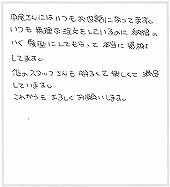 中尾さんにはいつもお世話になってます。
いつも無理な注文をしているのに納得の
いく髪型にしてもらって本当に感謝
してます。
他のスタッフさんも明るくて優しくて満足
しています。
これからもよろしくお願いします。